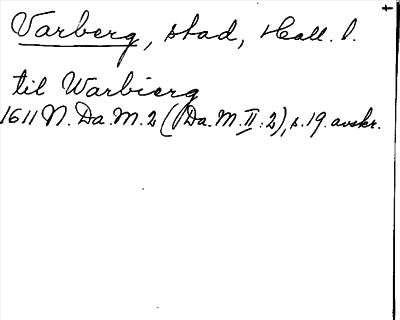 Varberg, stad, Hall. l.
til Warbierg
1611 N. Da. M. 2 (Da. M. II: 2), s. 19. avskr.